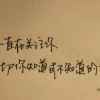 一直在关注你
切你知道或不知道的